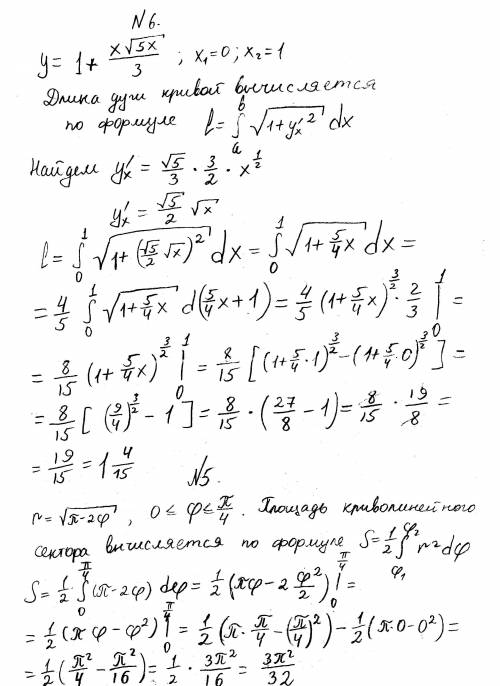 N6.
y = 1 + x√5x / 3 ; x₁=0 ; x₂=1
Длина дуги кривой вычисляется
по формуле l = ∫ₐᵇ √(1+y'ₓ²) dx
Найдем y'ₓ = √5/3 · 3/2 · x^(1/2)
y'ₓ = √5/2 √x
l = ∫₀¹ √(1+(√5/2 √x)²) dx = ∫₀¹ √(1+5/4x) dx =
= 4/5 ∫₀¹ √(1+5/4x) d(5/4x+1) = 4/5 (1+5/4x)^(3/2) · 2/3 |₀¹ =
= 8/15 (1+5/4x)^(3/2) |₀¹ = 8/15 [(1+5/4·1)^(3/2) − (1+5/4·0)^(3/2)] =
= 8/15 [(9/4)^(3/2) − 1] = 8/15 · (27/8 − 1) = 8/15 · 19/8 =
= 19/15 = 1 4/15
N5.
r = √(π−2φ) , 0 ≤ φ ≤ π/4 . Площадь криволинейного
сектора вычисляется по формуле S = 1/2 ∫_φ₁^φ₂ r² dφ
S = 1/2 ∫₀^(π/4) (π−2φ) dφ = 1/2 (πφ − 2 φ²/2) |₀^(π/4) =
= 1/2 (πφ − φ²) |₀^(π/4) = 1/2 (π · π/4 − (π/4)²) − 1/2 (π·0−0²) =
= 1/2 (π²/4 − π²/16) = 1/2 · 3π²/16 = 3π²/32